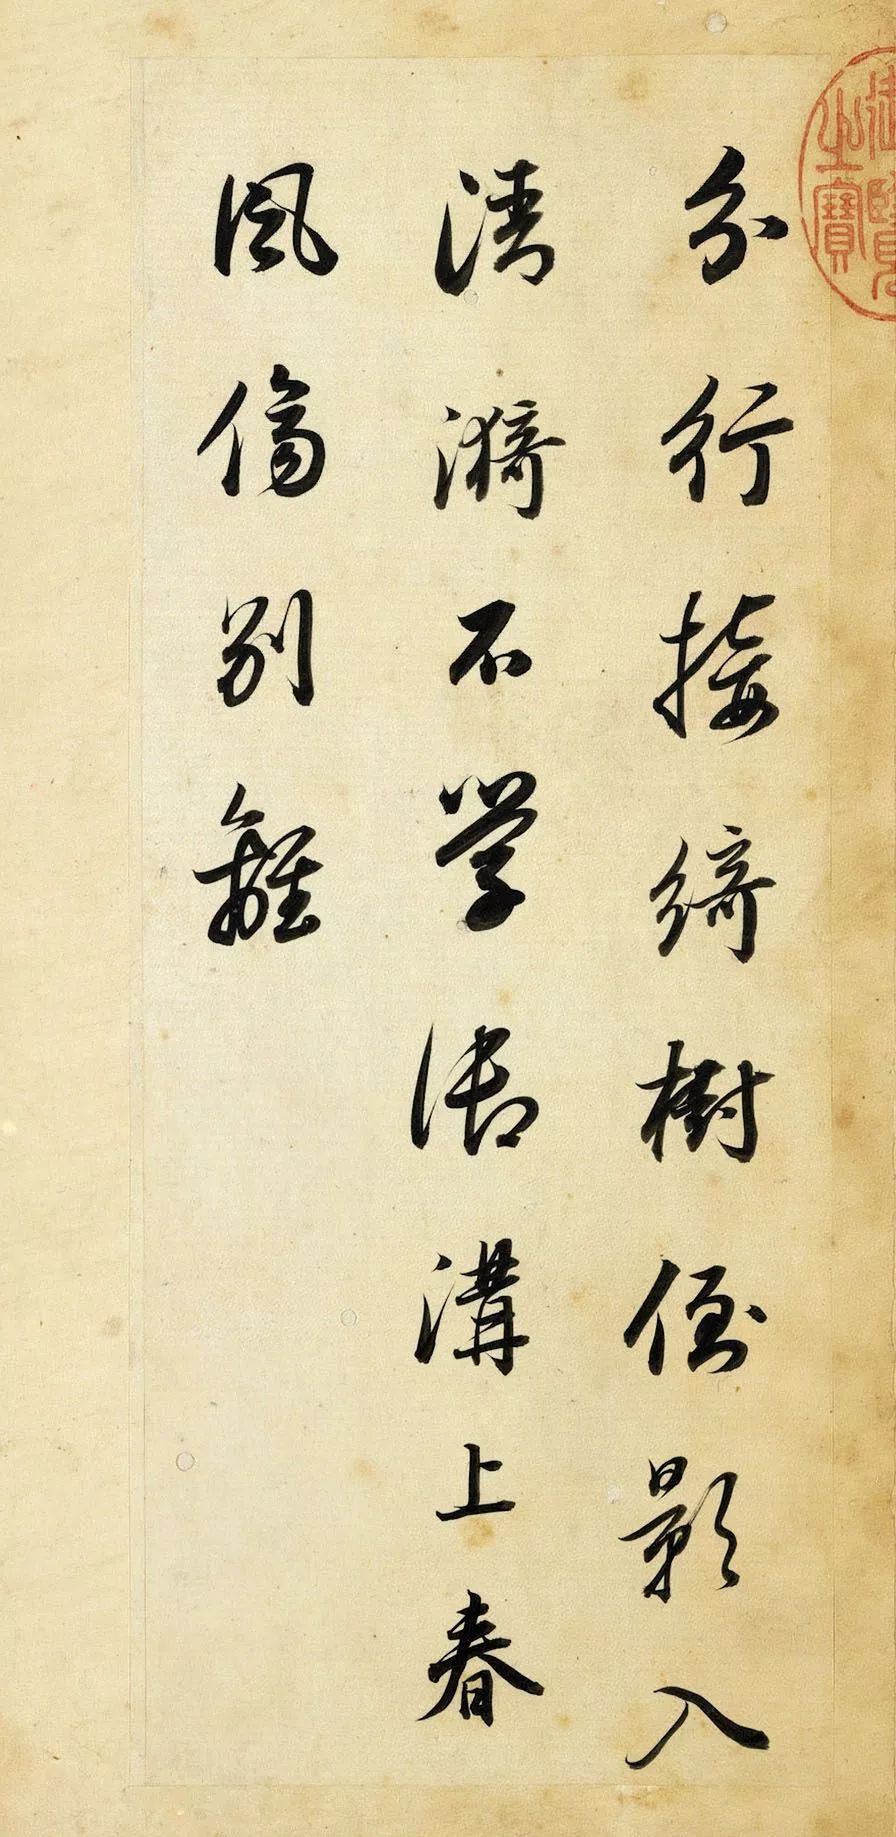 分行接綺樹倒影入
清漪不學御溝上春
風傷別離
御覽之寶